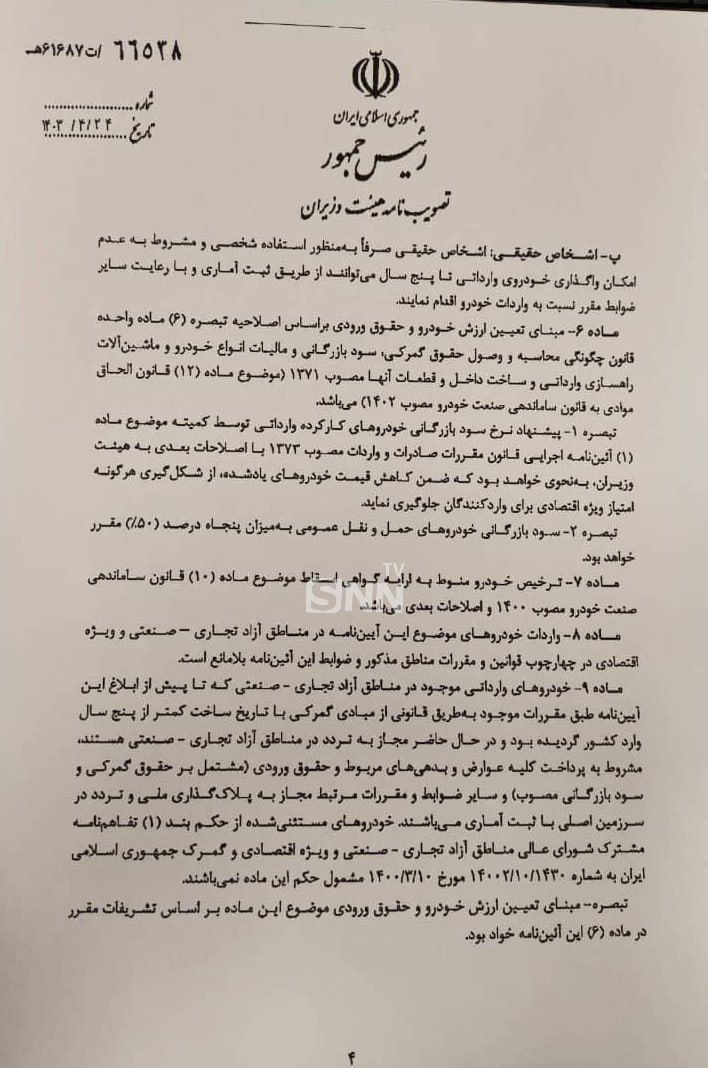 ۶۶۵۳۸ /ت۶۱۶۸۷هـ
شماره
تاریخ ۱۴۰۳/۴/۲۴
جمهوری اسلامی ایران
رئیس جمهور
تصویب نامه هیئت وزیران
پ- اشخاص حقیقی: اشخاص حقیقی صرفاً به‌منظور استفاده شخصی و مشروط به عدم
امکان واگذاری خودروی وارداتی تا پنج سال می‌توانند از طریق ثبت آماری و با رعایت سایر
ضوابط مقرر نسبت به واردات خودرو اقدام نمایند.
ماده ۶- مبنای تعیین ارزش خودرو و حقوق ورودی براساس اصلاحیه تبصره (۶) ماده واحده
قانون چگونگی محاسبه و وصول حقوق گمرکی، سود بازرگانی و مالیات انواع خودرو و ماشین‌آلات
راهسازی وارداتی و ساخت داخل و قطعات آنها مصوب ۱۳۷۱ (موضوع ماده (۱۲) قانون الحاق
موادی به قانون ساماندهی صنعت خودرو مصوب ۱۴۰۲) می‌باشد.
تبصره ۱- پیشنهاد نرخ سود بازرگانی خودروهای کارکرده وارداتی توسط کمیته موضوع ماده
(۱) آئین‌نامه اجرایی قانون مقررات صادرات و واردات مصوب ۱۳۷۳ با اصلاحات بعدی به هیئت
وزیران، به‌نحوی خواهد بود که ضمن کاهش قیمت خودروهای یادشده، از شکل‌گیری هرگونه
امتیاز ویژه اقتصادی برای واردکنندگان جلوگیری نماید.
تبصره ۲- سود بازرگانی خودروهای حمل و نقل عمومی به‌میزان پنجاه درصد (۵۰٪) مقرر
خواهد بود.
ماده ۷- ترخیص خودرو منوط به ارایه گواهی اسقاط موضوع ماده (۱۰) قانون ساماندهی
صنعت خودرو مصوب ۱۴۰۰ و اصلاحات بعدی می‌باشد.
SNN TV
ماده ۸- واردات خودروهای موضوع این آیین‌نامه در مناطق آزاد تجاری – صنعتی و ویژه
اقتصادی در چهارچوب قوانین و مقررات مناطق مذکور و ضوابط این آئین‌نامه بلامانع است.
ماده ۹- خودروهای وارداتی موجود در مناطق آزاد تجاری - صنعتی که تا پیش از ابلاغ این
آیین‌نامه طبق مقررات موجود به‌طریق قانونی از مبادی گمرکی با تاریخ ساخت کمتر از پنج سال
وارد کشور گردیده بود و در حال حاضر مجاز به تردد در مناطق آزاد تجاری - صنعتی هستند،
مشروط به پرداخت کلیه عوارض و بدهی‌های مربوط و حقوق ورودی (مشتمل بر حقوق گمرکی و
سود بازرگانی مصوب) و سایر ضوابط و مقررات مرتبط مجاز به پلاک‌گذاری ملی و تردد در
سرزمین اصلی با ثبت آماری می‌باشند. خودروهای مستثنی‌شده از حکم بند (۱) تفاهم‌نامه
مشترک شورای عالی مناطق آزاد تجاری - صنعتی و ویژه اقتصادی و گمرک جمهوری اسلامی
ایران به شماره ۱۴۰۰۲/۱۰/۱۴۳۰ مورخ ۱۴۰۰/۳/۱۰ مشمول حکم این ماده نمی‌باشند.
تبصره- مبنای تعیین ارزش خودرو و حقوق ورودی موضوع این ماده بر اساس تشریفات مقرر
در ماده (۶) این آئین‌نامه خواد بود.
۴